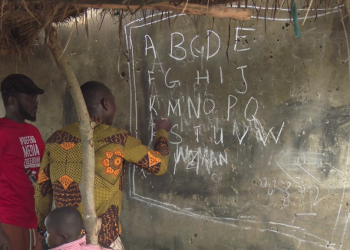 A B C D E
F G H I J
K M N O P Q
S T U V W
WOMAN
MEDIA